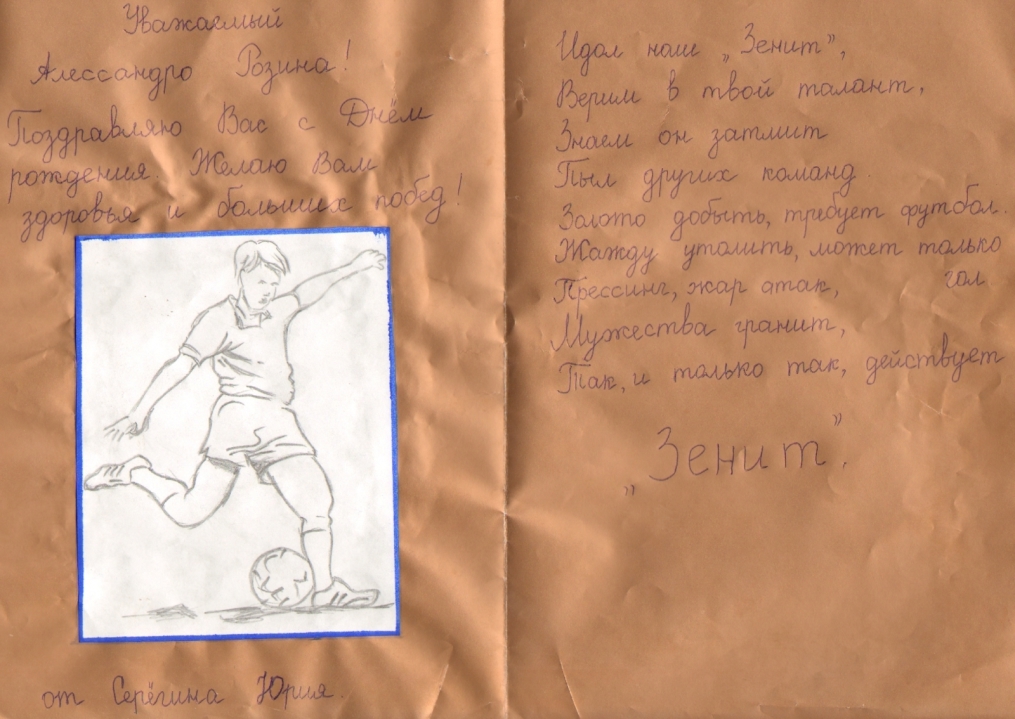 Уважаемый
Алессандро Розина!
Поздравляю Вас с Днём
рождения. Желаю Вам
здоровья и больших побед!
от Серёгина Юрия.
Идол наш „Зенит”,
Верим в твой талант,
Знаем он затмит
Пыл других команд.
Золото добыть, требует футбол.
Жажду утолить, может только
гол
Прессинг, жар атак,
Мужества гранит,
Так, и только так, действует
„Зенит”.